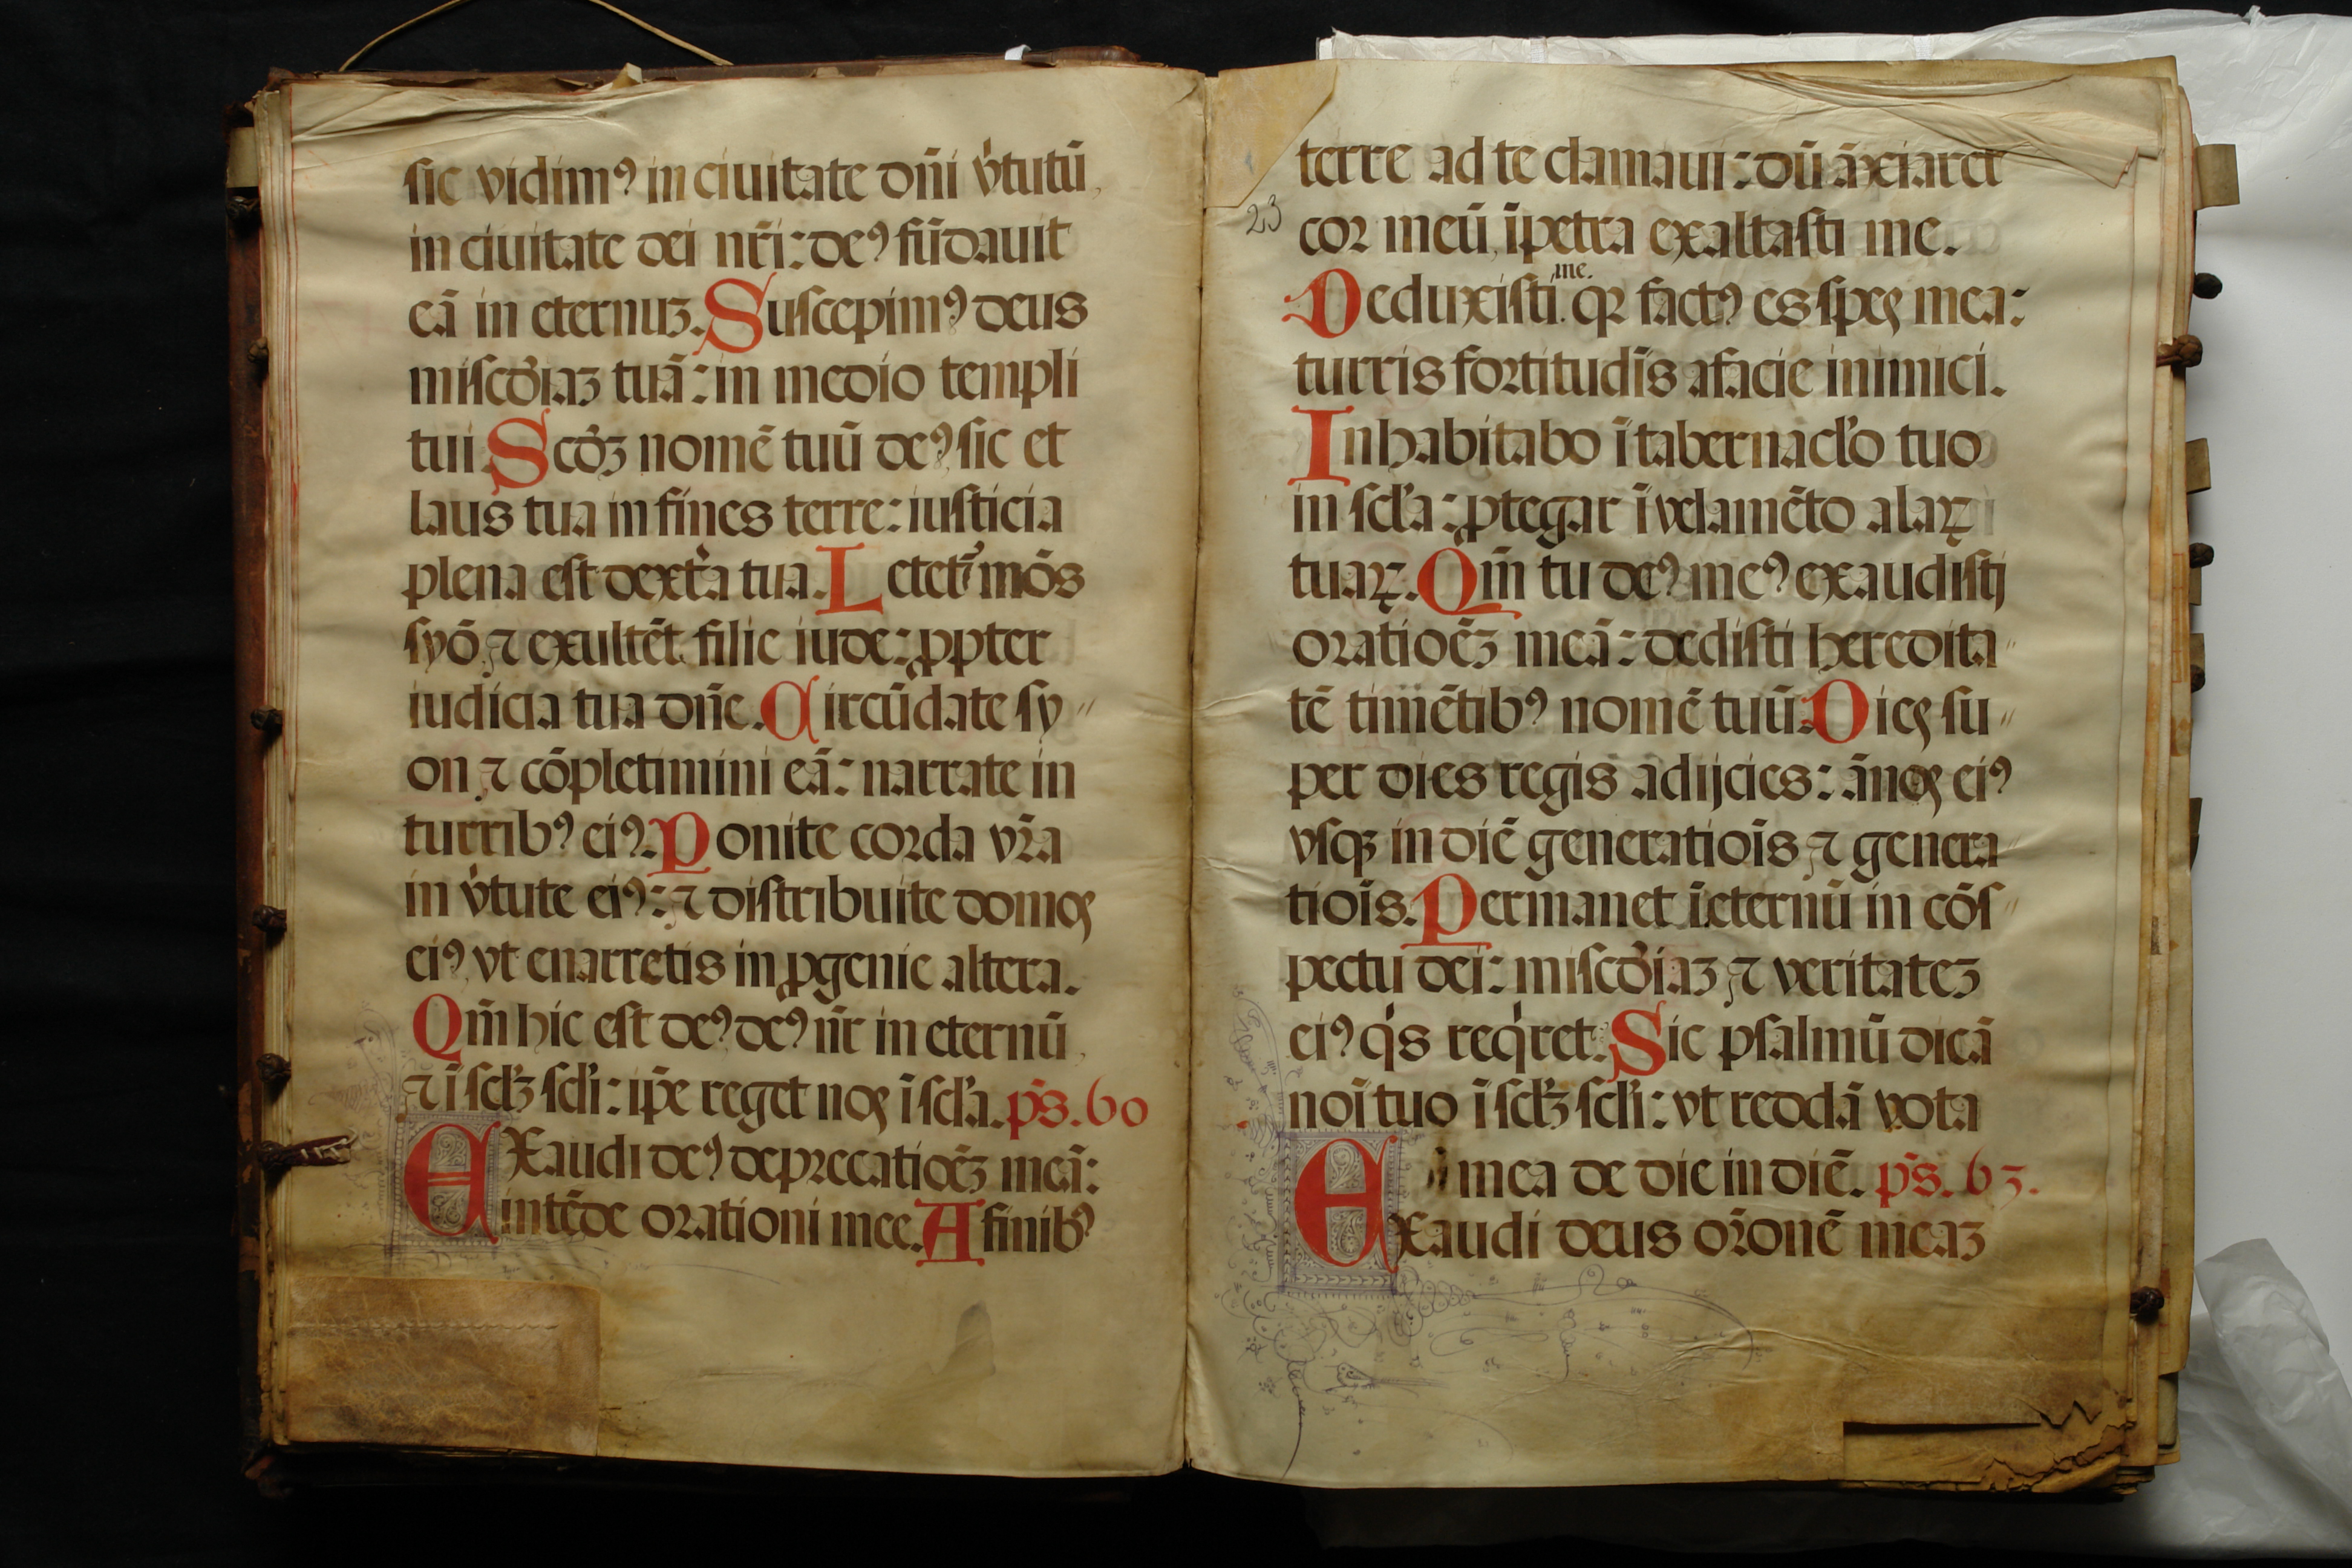 sic vidimꝰ in ciuitate dñi v̓tutū
in ciuitate dei nr̄i: deꝰ fūdauit
eā in eternuꝫ. Suscepimꝰ deus
misc̄diaꝫ tuā: in medio templi
tui. Scd̓ꝫ nomē tuū deꝰ, sic et
laus tua in fines terre: iusticia
plena est dext̓a tua. Letet̓ mōs
syō, ⁊ exultēt filie iude: ꝓpter
iudicia tua dñe. Circūdate sy〃
on ⁊ cōpletimini eā: narrate in
turribꝰ eiꝰ. Ponite corda vr̄a
in v̓tute eiꝰ: ⁊ distribuite domos
eiꝰ, vt enarretis in ꝓgenie altera.
Qm̄ hic est deꝰ, deꝰ nr̄ in eternū
⁊ ī scl̓ꝫ scl̓i: ip̄e reget nos ī scl̓a. ps̄. 60
EXaudi deꝰ deprecatioēꝫ meā:
intēde orationi mee. A finibꝰ
terre ad te clamaui: dū āxiaret
23
cor meū, īpetra exaltasti me.
me.
Deduxisti qꝛ factꝰ es spes mea:
turris fortitudīs afacie inimici.
Inhabitabo ī tabernacl̓o tuo
in scl̓a: ꝓtegar ī velamēto alaꝝ
tuaꝝ. Qm̄ tu deꝰ meꝰ exaudisti
oratioēꝫ meā: dedisti heredita〃
tē timētibꝰ nomē tuū. Dies su〃
per dies regis adijcies: ānos eiꝰ
vsqꝫ in diē generatiōis ⁊ genera〃
tiōis. Permanet ī eternū in cōs〃
pectu dei: misc̄diaꝫ ⁊ veritateꝫ
eiꝰ q̓s req̓ret. Sic psalmū dicā
noī tuo ī scl̓ꝫ scl̓i: vt reddā vota
mea de die in diē. ps̄. 63.
EXaudi deus or̄onē meaꝫ